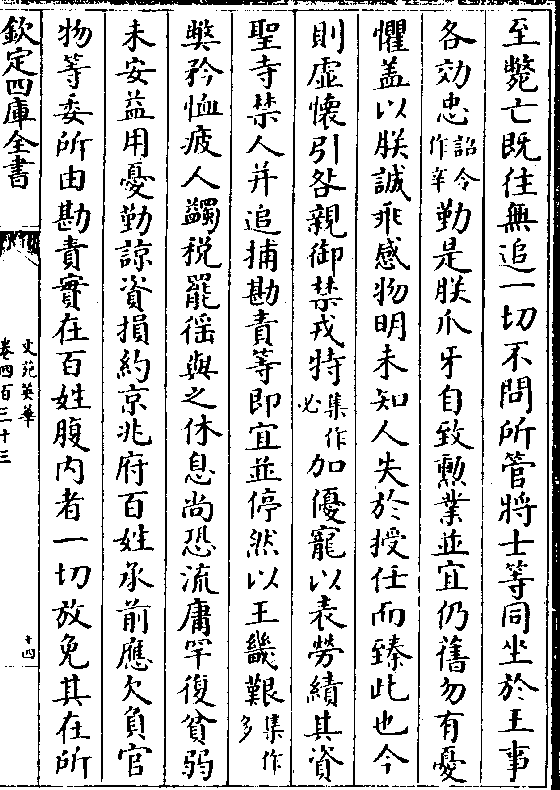 至斃亡既往無追一切不問所管將士等同坐於王事
各効忠詔今作辛勤是朕爪牙自致勲業並宜仍舊勿有憂
懼盖以朕誠乖感物明未知人失於授任而臻此也今
則虛懷引咎親御禁戎特集作必加優寵以表勞績其資
聖寺禁人并追捕勘責等即宜並停然以王畿艱集作多
獘矜恤疲人蠲税罷徭與之休息尚恐流庸罕復貧弱
未安益用憂勤諒資損約京兆府百姓承前應欠負官
物等委所由勘責實在百姓腹内者一切放免其在所
欽定四庫全書
文苑英華
卷四百三十三
十四